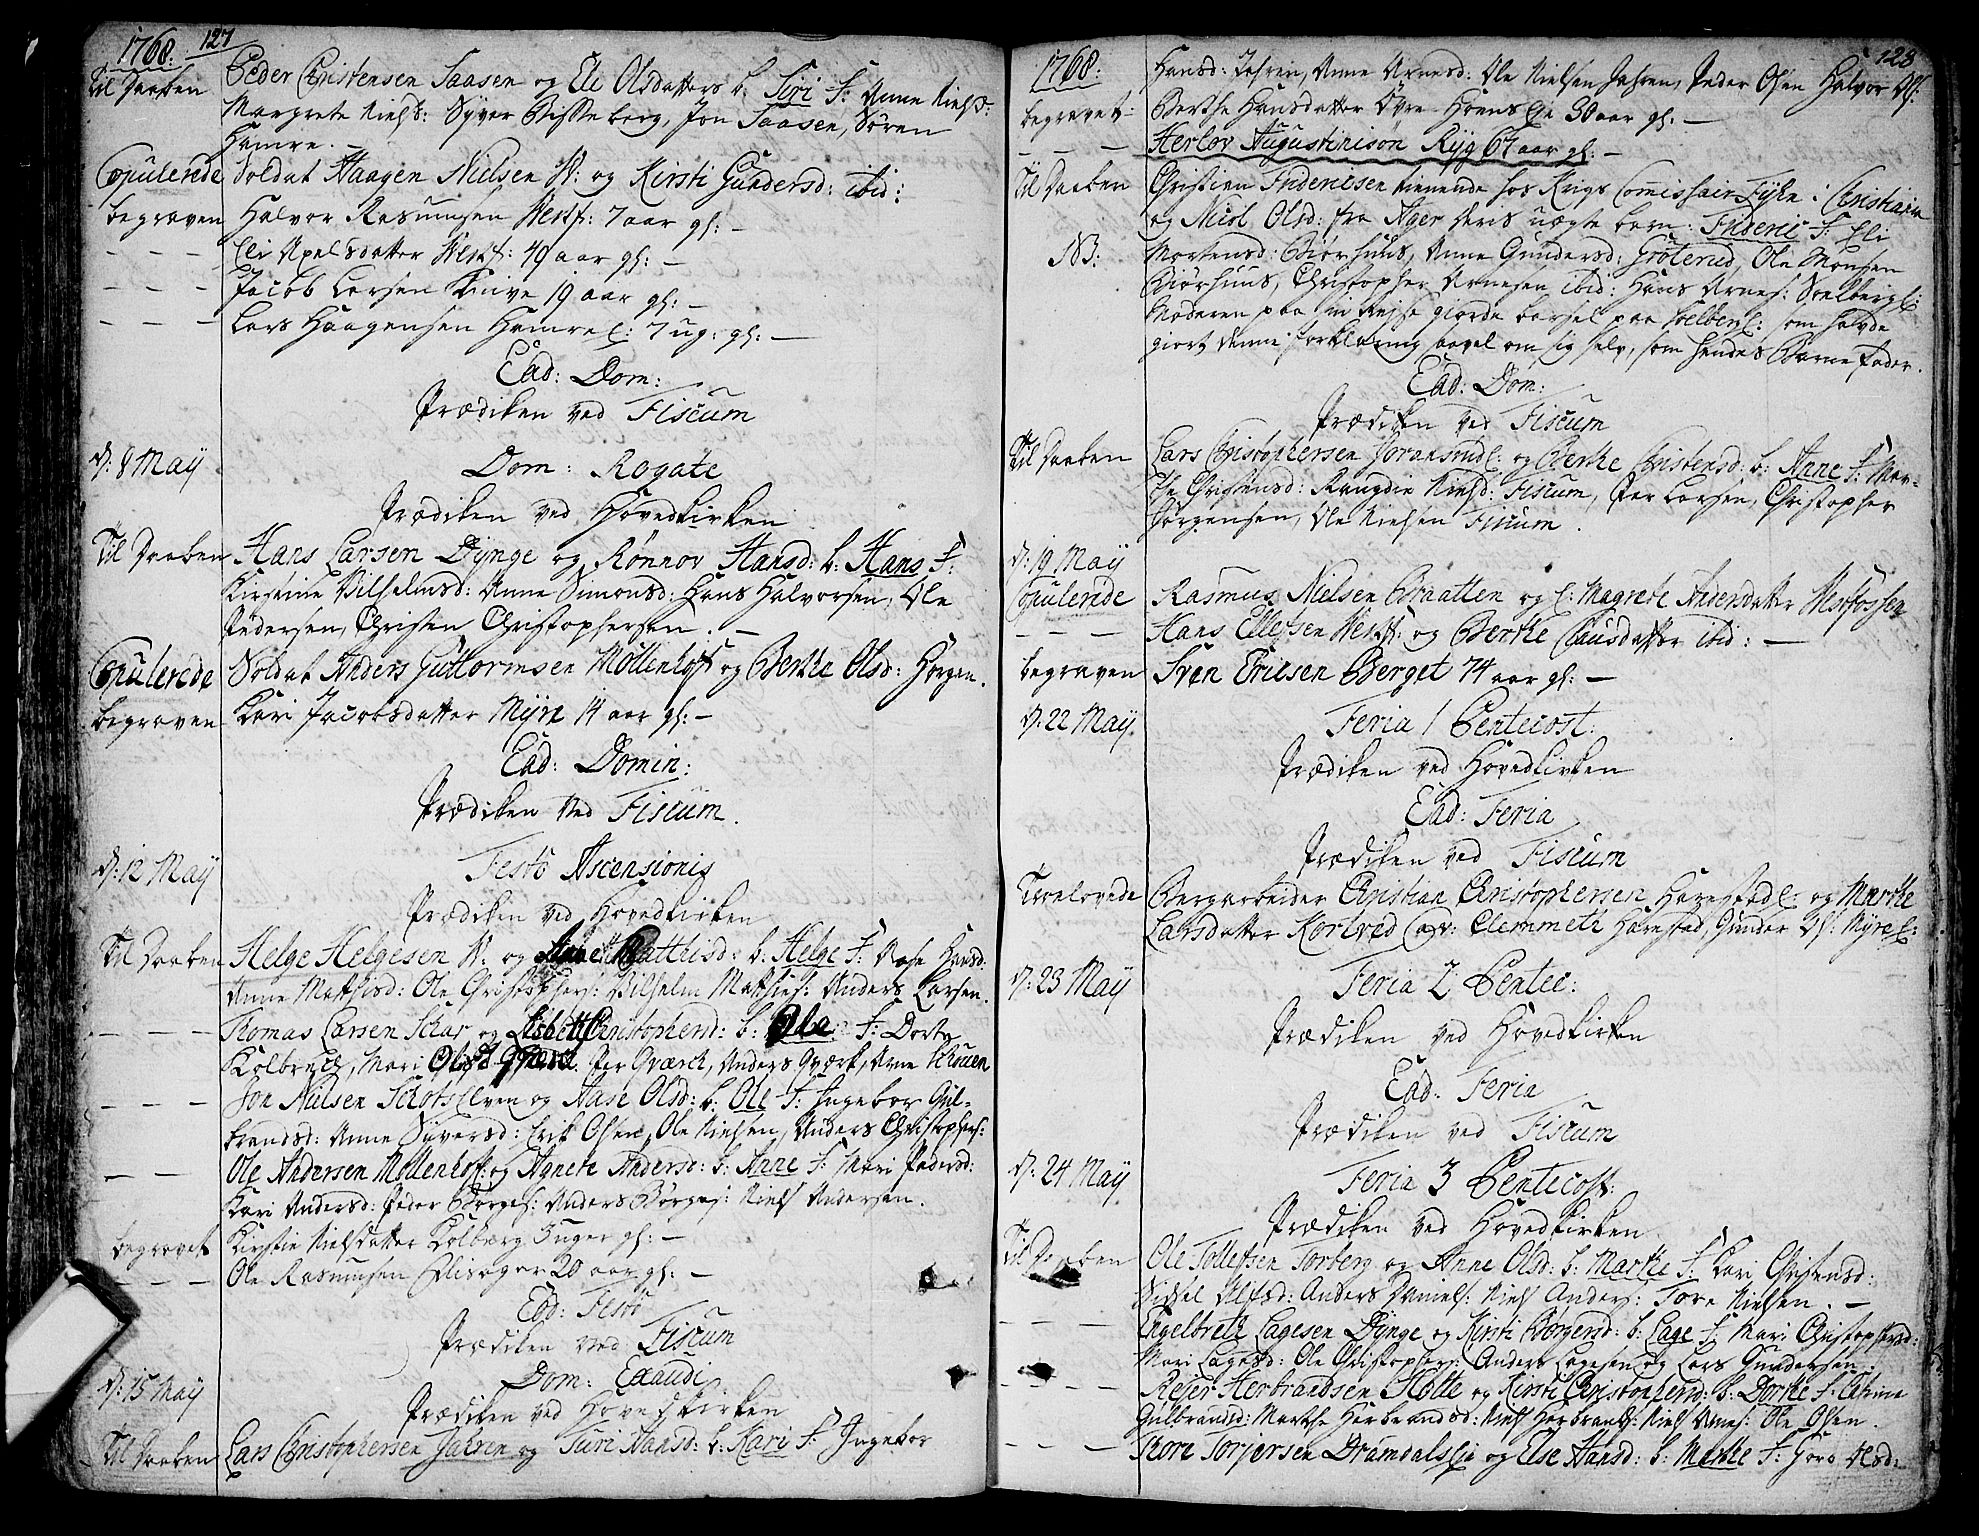 1768. 127
Til Daaben Peder Christensen Saasen og Eli Olsdatters b: Siri F: Anne Niels:
Margrete Niels: Syver Bisseberg, Jon Saasen, Søren
Hamre. —
Copulerede Soldat Haagen Nielsen W: og Kirsti Gundersd: ibid:
begraven Halvor Rasmusen Westf: 7 aar gl: —
— — — Eli Apelsdatter Westf: 49 aar gl: —
— — — Jacob Larsen Knive 19 aar gl: —
— — — Lars Haagensen Hamre: 7 ug: gl: —
Ead: Dom:
Prædiken ved Fiscum
D: 8 Maÿ Dom: Rogate
Prædiken ved Hovedkirken
Til Daaben Hans Larsen Dÿnge og Rønnov Hansd: b: Hans F:
Kirstine Vilhelmsd: Anne Simonsd: Hans Halvorsen, Ole
Pedersen, Christen Christophersen. —
Copulerede Soldat Anders Guttormsen Møllenhof og Berthe Olsd: Horgen.
begraven Kari Jacobsdatter Mÿre 14 aar gl: —
Ead: Domin:
Prædiken ved Fiscum.
D: 12 Maÿ Festo Ascensionis
Prædiken ved Hovedkirken
Til Daaben Helge Helgesen W: og Anne Matthisd: b: Helge F: Aase Hansd:
Anne Mathisd: Ole Christophers: Vilhelm Mathies: Anders Larsen.
— — — Thomas Larsen Schar og Lisbeth Christophersd: b: Ola F: Dorte
Kolbrech, Mari Olsd Qværk, Per Qværk, Anders Qværk, Arne
— — — Jon Nielsen Schotselven og Aase Olsd: b: Ole F: Ingebor Gul-
brandsd: Anne Syversd: Erik Olsen, Ole Nielsen, Anders Christophers:
— — Ole Andersen Møllenhof: og Agnete Andersd: b: Anne F: Mari Pedersd:
Kari Andersd: Peder Børges: Anders Børges: Niels Andersen.
begravet Kirstie Nielsdatter Kolberg 3 uger gl: —
— — — Ole Rasmusen 20 aar gl: —
Ead: Festo
Prædiken ved Fiscum
D: 15 Maÿ Dom: Exaudi
Prædiken ved Hovedkirken
Til Daaben Lars Christophersen Jahren og Turi Hansd: b: Kari F: Ingebor
1768. 128
Hansd: Jahren, Anne Arnesd: Ole Nielsen Jahren, Peder Olsen Halvor Ols:
begravet Berthe Hansdatter Øvre Hoens Eje 30 aar gl: —
— — — Herlov Augustinison Ryg 67 aar gl: —
Til Daaben Christien Friderichsen tienende hos Krigs Comissair Fÿhn i Christiania
og Nicol Olsd: fra Ager deris uægte barn: Frideric F: Eli
NB: Mortensd: Biørhuus, Anne Gundersd: Groterud, Ole Monsen
Biørhuus, Christopher Arnesen ibid: Hans Arnes: Soelberg:
Moderen paa sin rejse giorde barsel paa Soelberg: som havde
giort denne forklaring saavel om sig selv, som hendes Barne fader.
Ead: Dom:
Prædiken ved Fiscum
Til Daaben Lars Christophersen Joransrud: og Berthe Christensd: b: Anne F: Mar-
the Christensd: Raugdie Nielsd: Fiscum, Per Larsen, Christopher
Jørgensen, Ole Nielsen Fiscum.
D: 19 Maÿ
Copulerede Rasmus Nielsen Braatten og Magrete Andersdatter Westfossen
— — — Hans Ellefsen Westf: og Berthe Clausdatter ibid: —
begraven Sven Ericsen Berget 74 aar gl: —
D: 22 Maÿ. Feria 1 Pentecost:
Prædiken ved Hovedkirken
Ead: Feria
Prædiken ved Fiscum
Troelovede Bergarbeider Christian Christophersen Harestad: og Marthe
Larsdatter Kortved Cav: Clemmeth Harestad, Gunder Ols: Mÿre:
D: 23 Maÿ Feria 2 Pentec:
Prædiken ved Hovedkirken
Ead: Feria
Prædiken ved Fiscum
D: 24 Maÿ Feria 3 Pentecost:
Prædiken ved Hovedkirken
Til Daaben Ole Tollefsen Torberg og Anne Olsd: b: Marthe F: Kari Christensd:
Sidsel Alfsd: Anders Daniels: Niels Anders: Tore Nielsen. —
— — — Engelbreth Lagesen Dÿnge og Kirsti Børgersd: b: Lage F: Mari Christophersd:
Mari Lagesd: Ole Christophers: Anders Lagesen og Lars Gundersen.
— — — Rejer Herbrandsen Holte og Kirsti Christophersd: b: Dorthe F:
Gulbrandsd: Marthe Herbrandsd: Niels Herbrands: Niels Arnes: Ole Olsen.
— — — Thore Torjersen Dramdals Eje og Else Hansd: b: Marthe F: Goro Olsd: